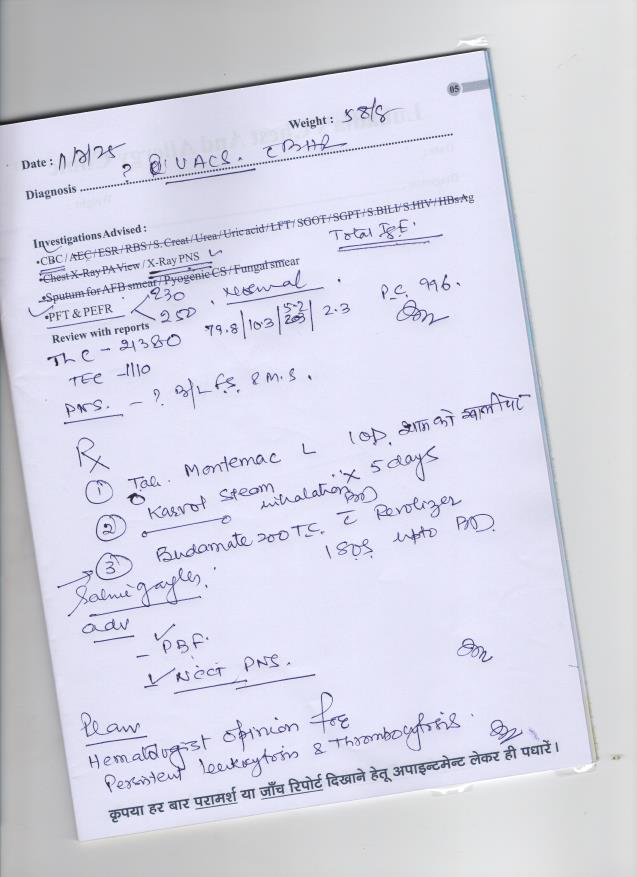 05
Weight : 58/8
Date : 11/2/25
Diagnosis ? UACS. c BHR
Investigations Advised :
•CBC / AEC / ESR / RBS / S. Creat / Urea / Uric acid / LFT / SGOT / SGPT / S.BILI / S.HIV / HBsAg
Total IgE.
•Chest X-Ray PA View / X-Ray PNS
•Sputum for AFB smear / Pyogenic CS / Fungal smear
•PFT & PEFR 230
250
P.C. 996.
Review with reports 79.8 | 10.3 | 5.2 | 2.3
TLC - 21380
TEC - 1110
PNS. - ? B/L F.S. & M.S.
Rx
① Tab. Montemac L 1 OD. शाम को खालीपेट
② Karvol Steam inhalation BD x 5 days
③ Budamate 200 T.C. c Revolizer
Saline gargles. upto BD.
adv
- PBF.
NCCT PNS.
Plan
Hematologist opinion for
Persistent leukocytosis & Thrombocytosis.
कृपया हर बार परामर्श या जाँच रिपोर्ट दिखाने हेतू अपाइन्टमेन्ट लेकर ही पधारें।